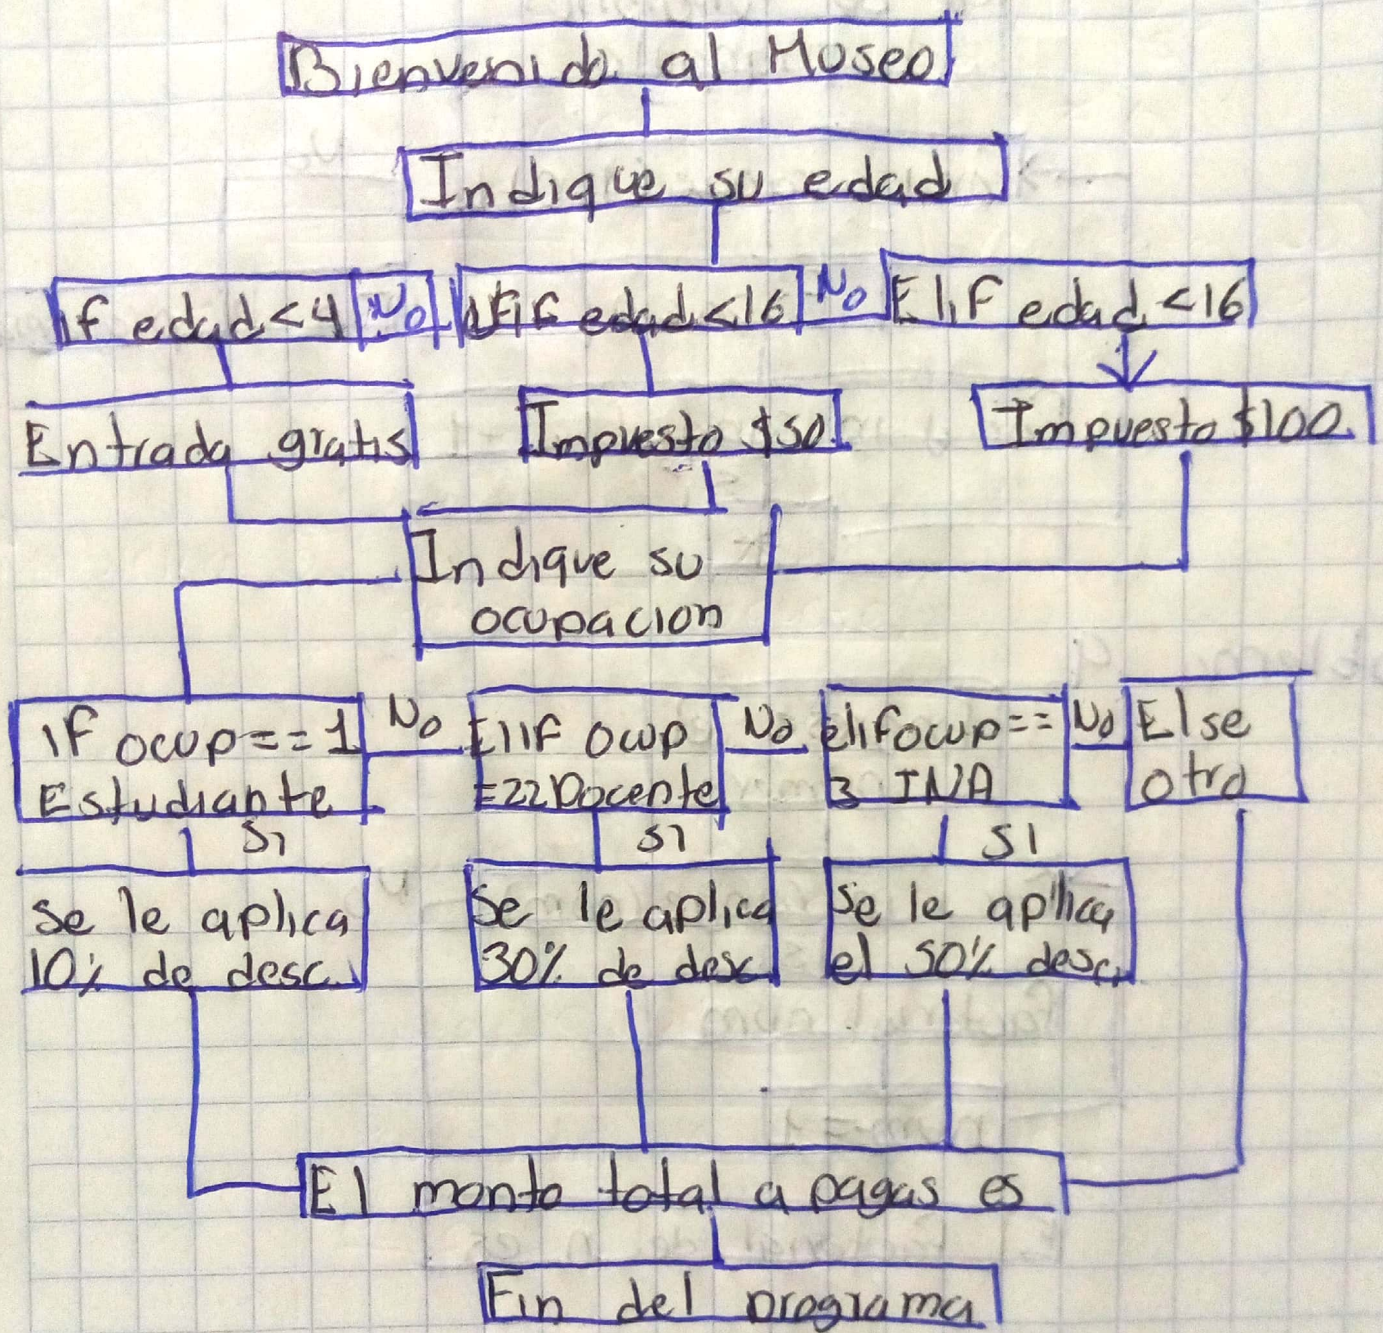 Bienvenido al Museo
Indique su edad
If edad<4 No Elif edad<16 No Elif edad <16
Entrada gratis Impuesto $50 Impuesto $100
Indique su
ocupacion
If ocup==1 No Elif ocup No Elif ocup== No Else
Estudiante =22Docente 3 INA otro
SI SI SI
Se le aplica Se le aplica Se le aplica
10% de desc. 30% de desc. el 50% desc.
El monto total a pagas es
Fin del programa